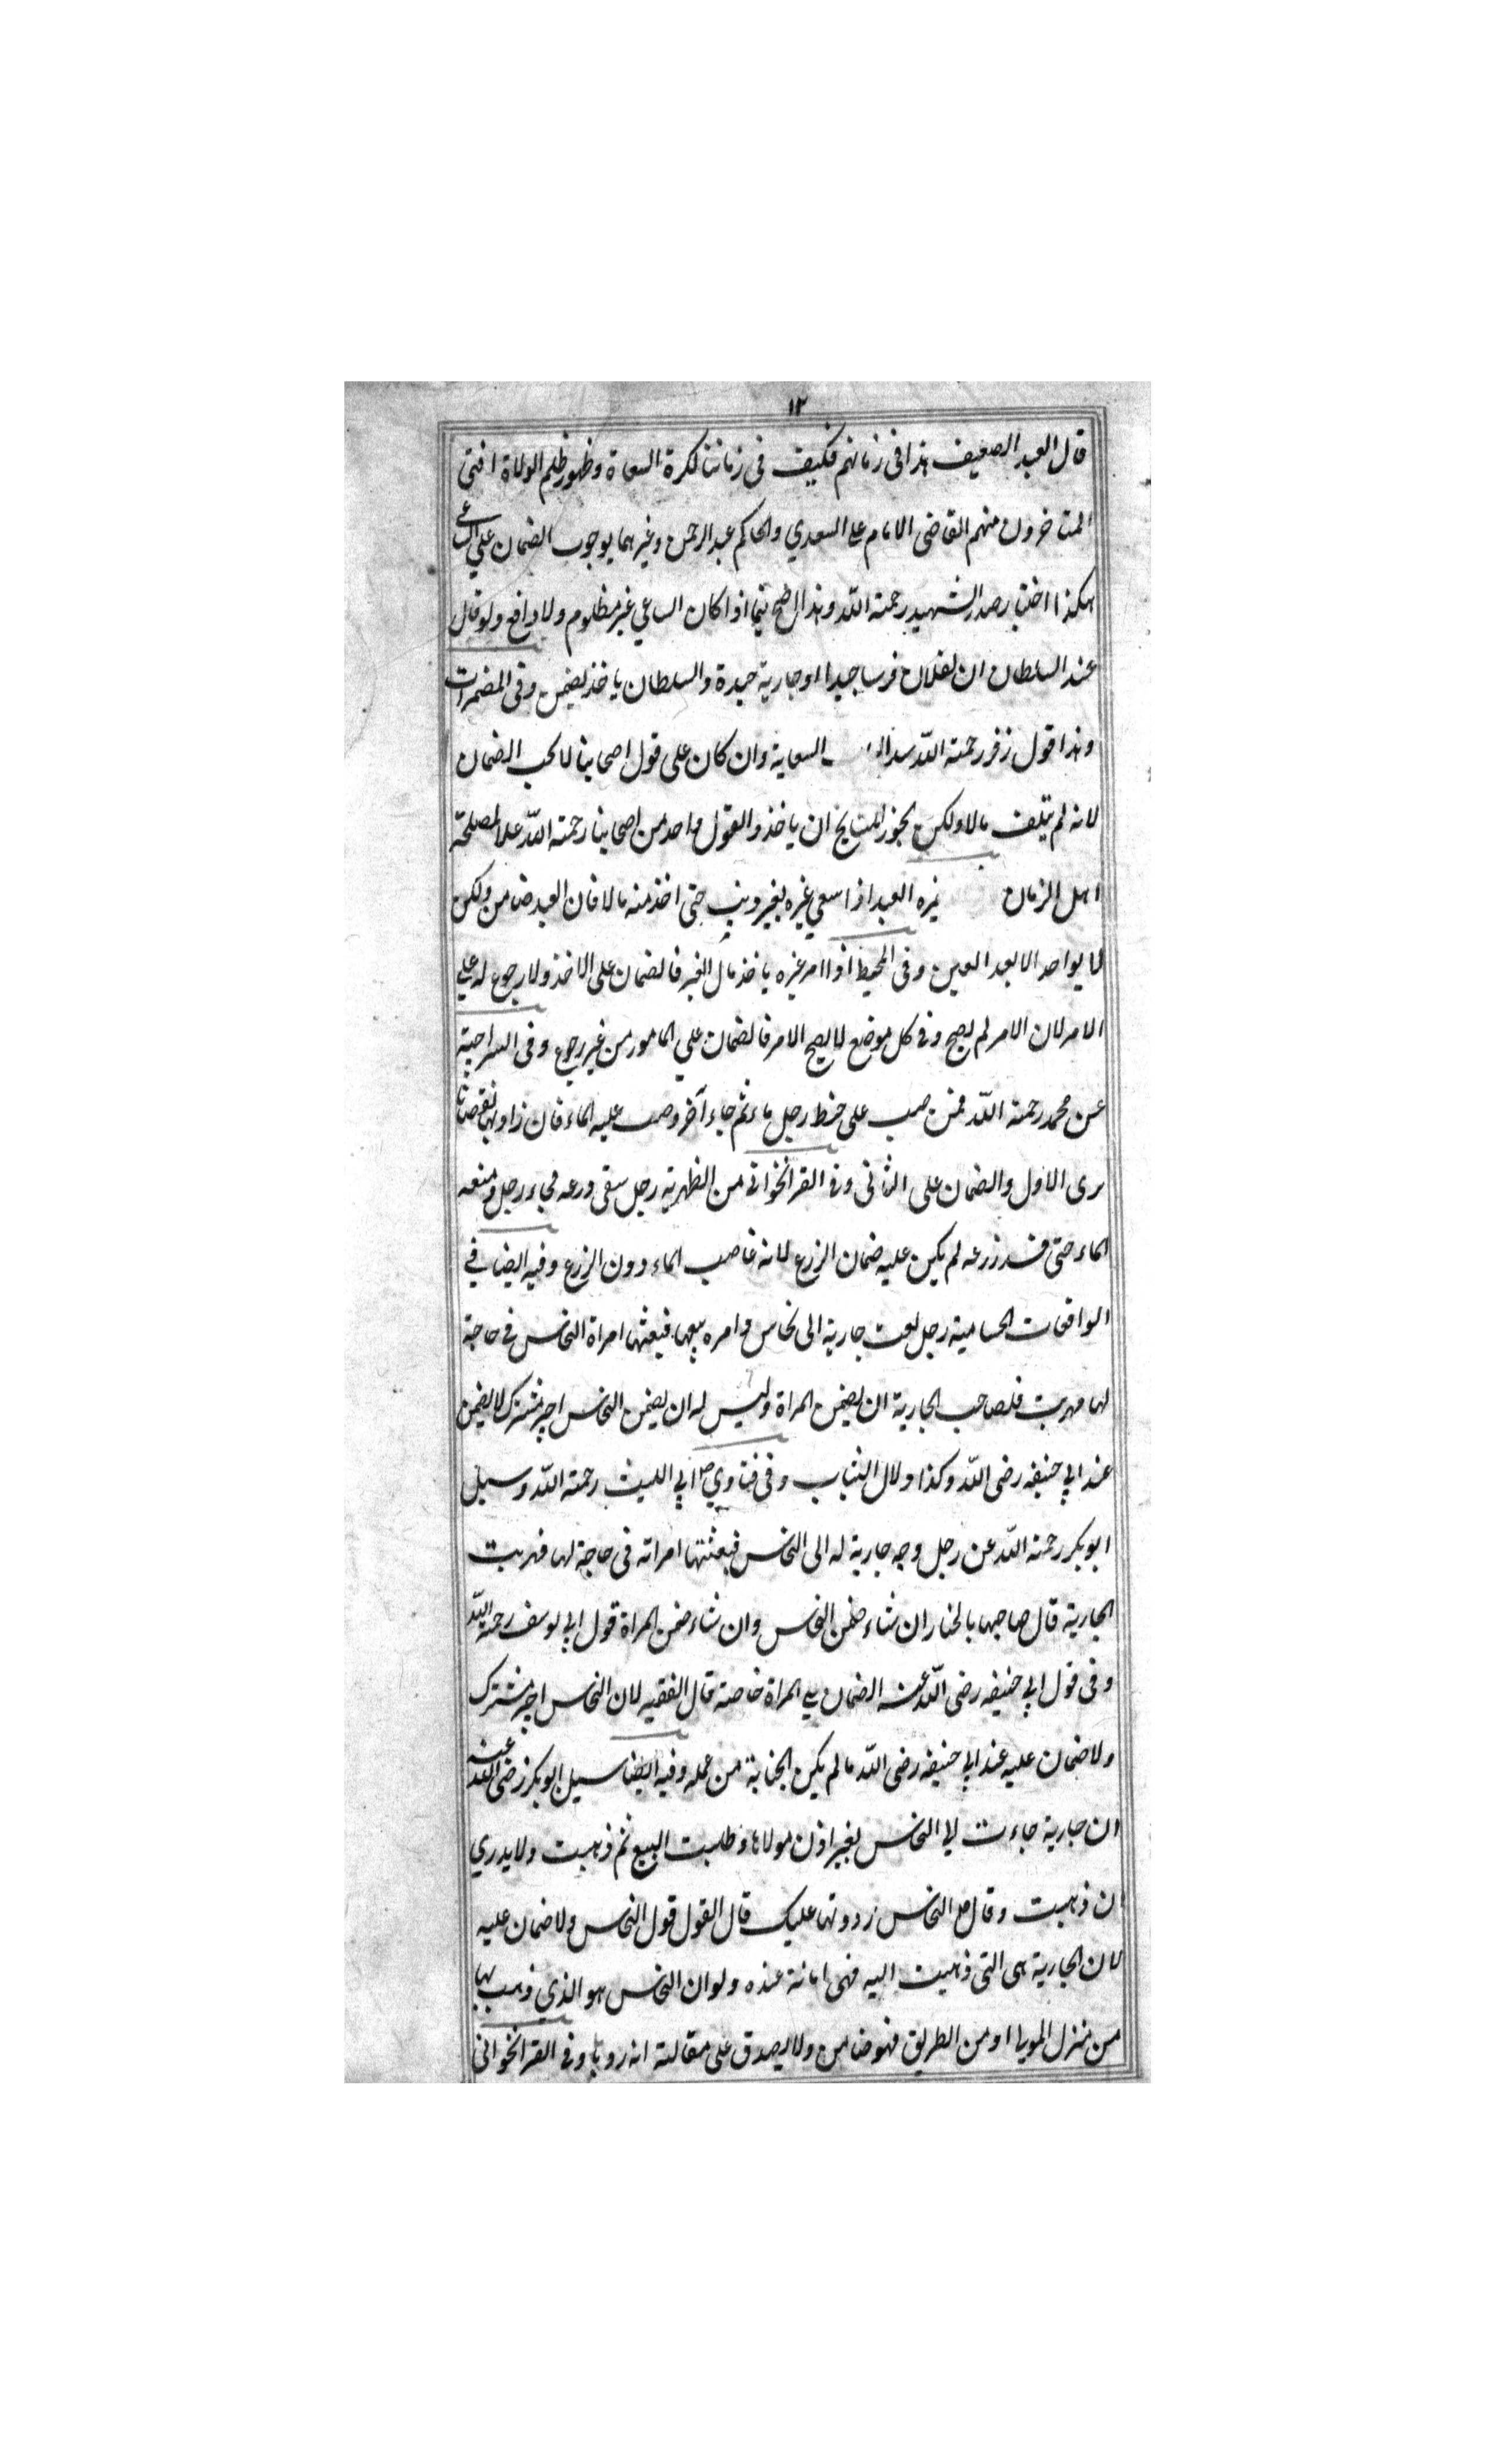 ١٢
قال العبد الضعيف هذا فى زمانهم فكيف فى زماننا لكثرة السعاة وظهور ظلم الولاة افتى
المتاخرون منهم القاضى الامام علي السعدي والحاكم عبد الرحمن وغيرهما بوجوب الضمان علي الساعي
هكذا اختار صدر الشهيد رحمة الله وهذا اذا كان الساعي غير مظلوم ولا دافع ولو قال
عند السلطان ان لفلان فرسا جيدا او جارية جيدة والسلطان ياخذ يضمن وفى المضمرات
وهذا قول زفر رحمة الله السعاية وان كان على قول اصحابنا لا يجب الضمان
لانه لم يتلف مالا ولكن يجوز للمشايخ ان ياخذوا لقول واحد من اصحابنا رحمة الله علا لمصلحة
اهل الزمان العبد اذا سعي غيره بغير حتى اخذ منه مالا فان العبد ضامن ولكن
لا يواخذ الا بعد العتق وفى المحيط اذا امر غيره ياخذ مال الغير فالضمان على الاخذ ولا رجوع له علي
الامر لان الامر لم يصح وفى كل موضع لا يصح الامر فالضمان علي المامور من غير رجوع وفى السراجية
عن محمد رحمة الله فمن صب على حنط رجل ماء ثم جاء آخر وصب عليه الماء فان زاد بها نقصانا
برى الاول والضمان على الثانى وفى القراخوانى من الظهرية رجل سقى زرعه فجاء رجل ومنعه
الماء حتى فسد زرعه لم يكن عليه ضمان الزرع لانه غاصب الماء دون الزرع وفيه ايضا في
الواقعات الحسامية رجل بعث جارية الى نخاس وامره ببيعها فبعثها امراة النخاس في حاجة
لها فهربت فلصاحب الجارية ان يضمن المراة وليس له ان يضمن النخاس اجير مشترك لا يضمن
عند ابي حنيفه رضى الله وكذا دلال الثياب وفى فتاوي ابي الليث رحمة الله وسيل
ابو بكر رحمة الله عن رجل وجه جارية له الى النخاس فبعثتها امراته فى حاجة لها فهربت
الجارية قال صاحبها بالخيار ان شاء ضمن النخاس وان شاء ضمن المراة قول ابي يوسف رحمة الله
وفى قول ابي حنيفه رضى الله عنه الضمان علي المراة خاصة قال الفقيه لان النخاس اجير مشترك
ولا ضمان عليه عند ابي حنيفه رضى الله ما لم يكن الجناية من عمله وفيه ايضا سيل ابو بكر رضى الله عنه
ان جارية جاءت الي النخاس بغير اذن مولاها وطلبت البيع ثم ذهبت ولا يدري
ان ذهبت وقال النخاس رددتها عليك قال القول قول النخاس ولا ضمان عليه
لان الجارية هى التى ذهبت اليه فهى امانة عنده ولو ان النخاس هو الذي ذهب بها
من منزل المولا او من الطريق فهو ضامن ولا يصدق على مقالته انه ردها وفى القراخوانى